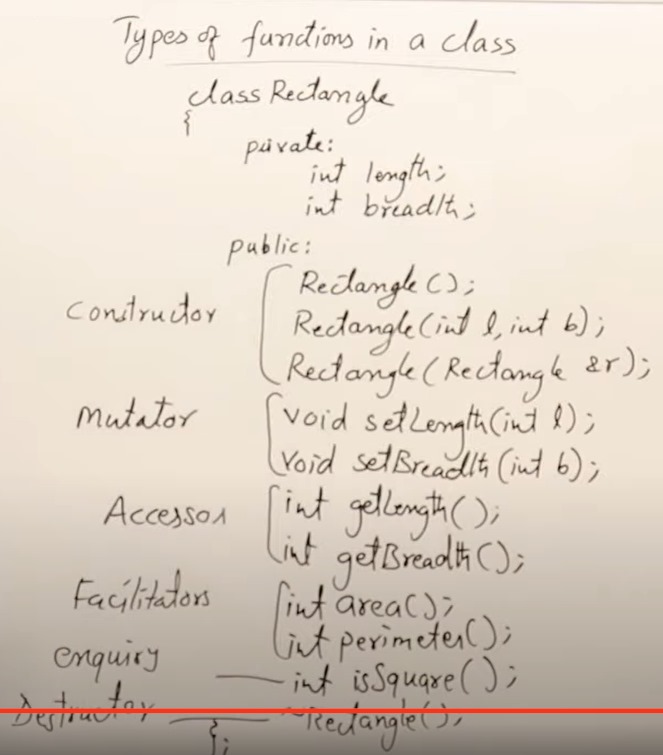 Types of functions in a class
class Rectangle
{
private:
int length;
int breadth;
public:
Constructor
Rectangle();
Rectangle(int l, int b);
Rectangle(Rectangle &r);
Mutator
void setLength(int l);
void setBreadth(int b);
Accessor
int getLength();
int getBreadth();
Facilitators
int area();
int perimeter();
enquiry
int isSquare();
Destructor
~Rectangle();
};